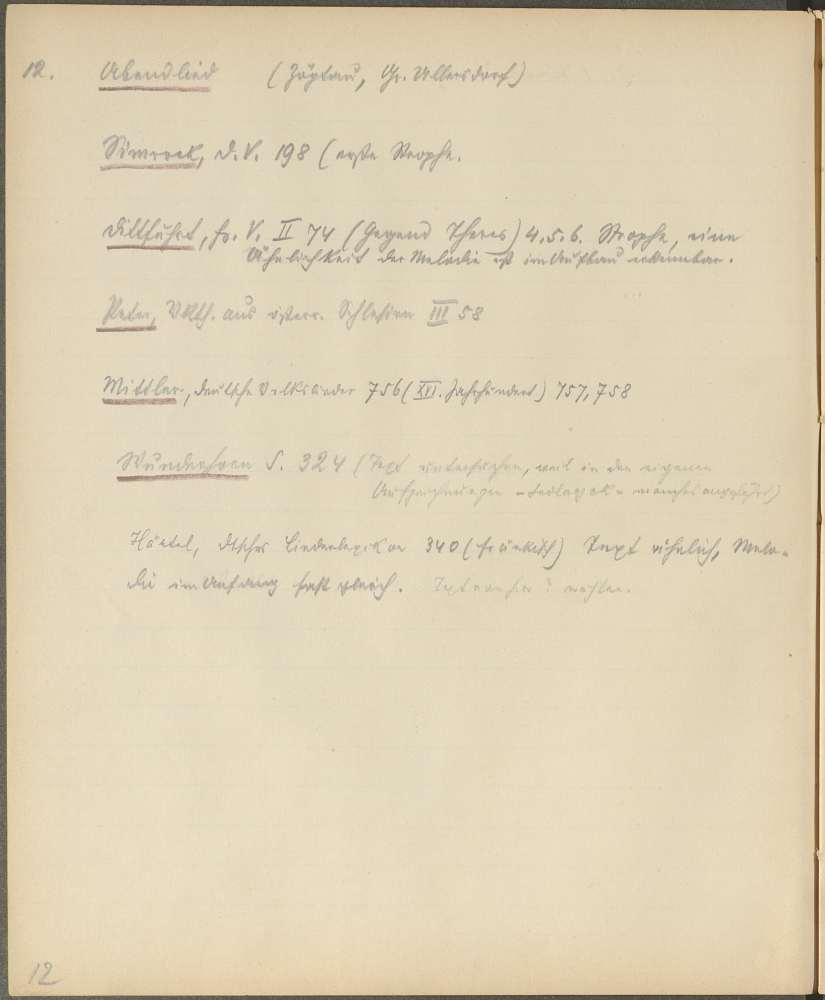 12. Abendlied (Zöptau, Gr. Ullersdorf)
Simrock, d. V. 198 (erste Strophe.
Ditfurth, fr. V. II 74 (Gegend Theres) 4.5.6. Strophe, eine
Ähnlichkeit der Melodie ist im Aufbau erkennbar.
Peter, Vkth. aus österr. Schlesien III 58
Mittler, deutsche Volkslieder 756 (XVI. Jahrhundert) 757, 758
Wunderhorn S. 324 (Text untersuchen, weil in den eigenen
Aufzeichnungen manches
Härtel, dtsches Liederlexikon 340 (fränkisch) Text ähnlich, Melo-
die im Anfang fast gleich. Text
12